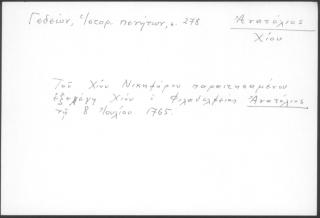 Γεδεών, Ἱστορ. πενήτων, σ. 278
Ἀνατόλιος
Χίου
Τοῦ Χίου Νικηφόρου παραιτησαμένου
ἐξελέγη Χίου ὁ Φιλαδελφείας Ἀνατόλιος
τῇ 8 Ἰουλίου 1765.